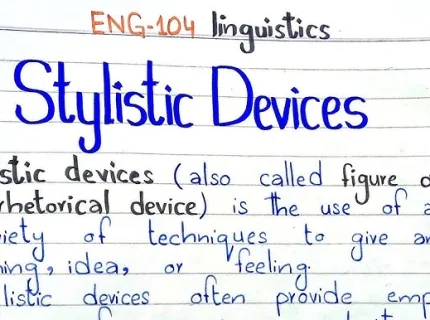 ENG-104 linguistics
Stylistic Devices
stic devices (also called figure o
rhetorical device) is the use of a
iety of techniques to give an
ning, idea, or feeling.
listic devices often provide emp